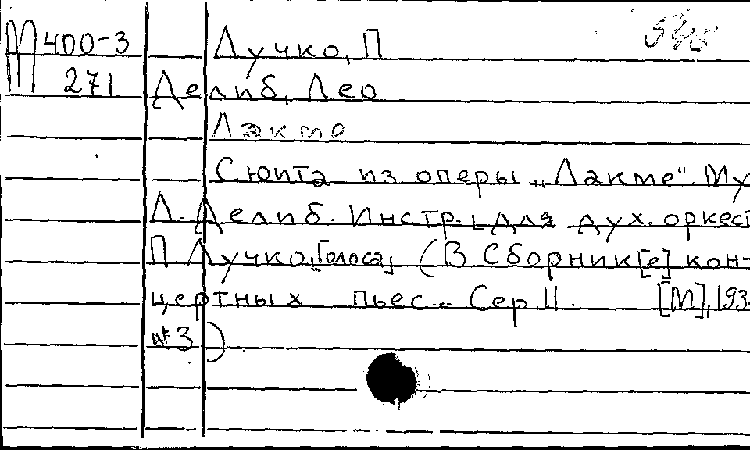 М 400-3 Лучко, П
271 Делиб, Лео
Лакме
Сюита из оперы „Лакме". Му
Л. Делиб. Инстр. для дух. оркест
П Лучко, [Голоса] (В Сборник[е] кон-
цертных пьес. Сер II. [М], 193
№ 3)